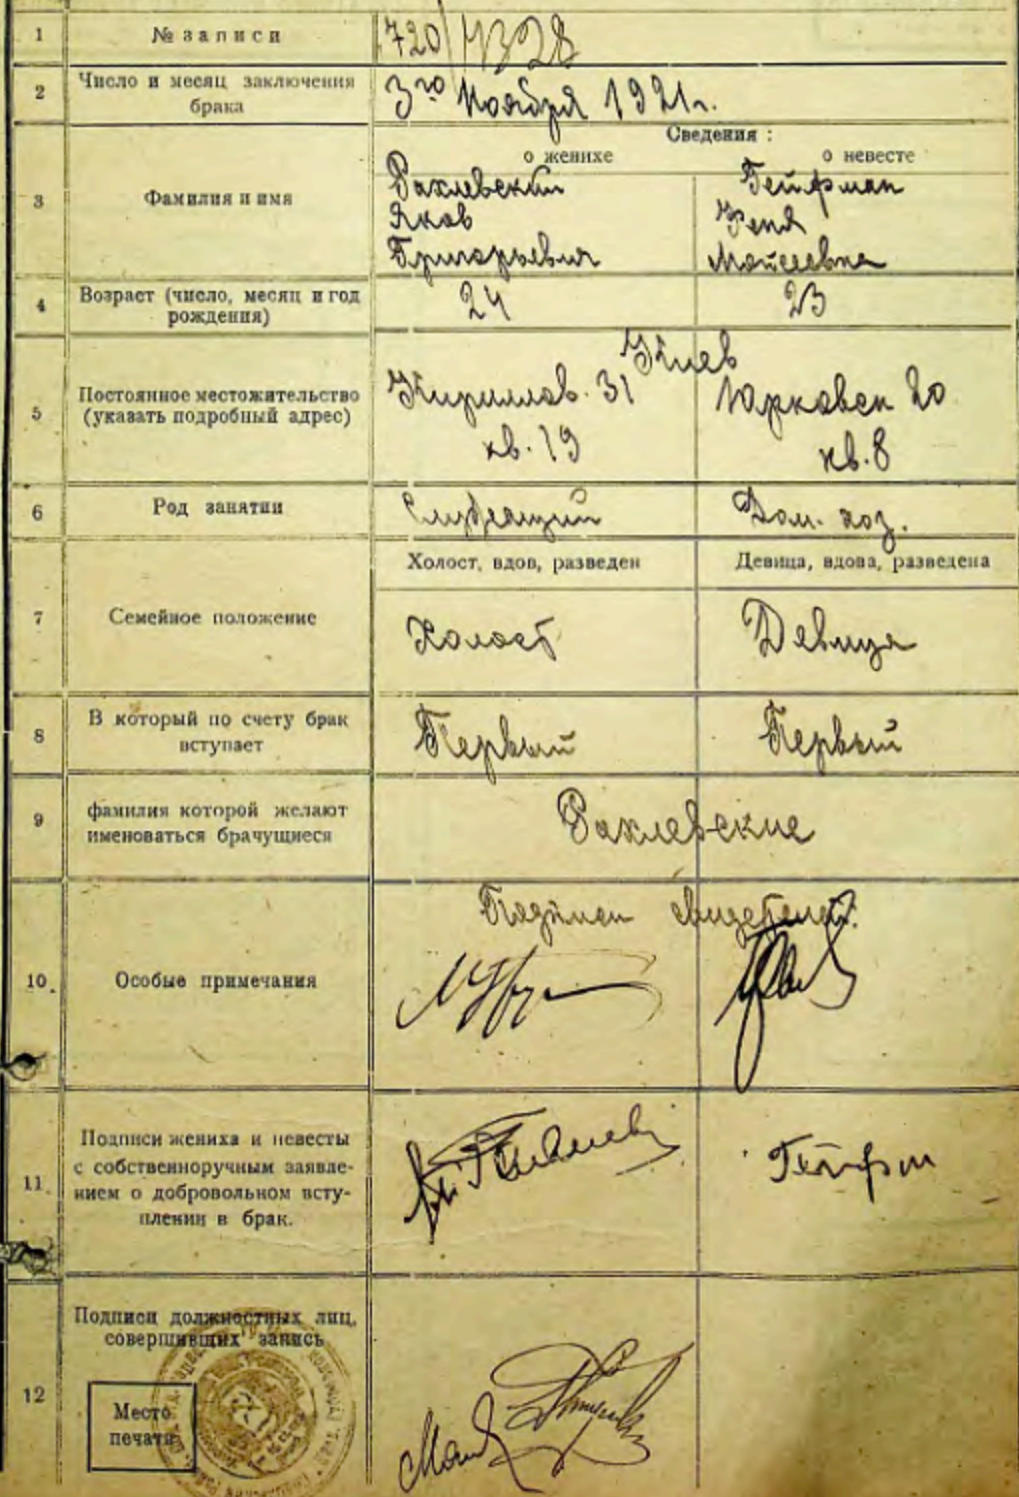 1 № записи 1720/4328
2 Число и месяц заключения
брака
3го Ноября 1921г.
Сведения :
о женихе о невесте
3 Фамилия и имя
Рахлевский Гейфман
Яков Геня
Григорьевич Мойсеевна
4 Возраст (число, месяц и год
рождения)
24 23
Киев
5 Постоянное местожительство
(указать подробный адрес)
Кириллов. 31 Юрковск 20
кв. 19 кв. 8
6 Род занятии Служащий Дом. хоз.
Холост, вдов, разведен Девица, вдова, разведена
7 Семейное положение Холост Девица
8 В который по счету брак
вступает
Первый Первый
9 фамилия которой желают
именоваться брачущиеся
Рахлевские
Подписи свидетелей:
10. Особые примечания
11. Подписи жениха и невесты
с собственноручным заявле-
нием о добровольном всту-
плении в брак.
Гейфман
12 Подписи должностных лиц,
совершивших запись
Место
печати